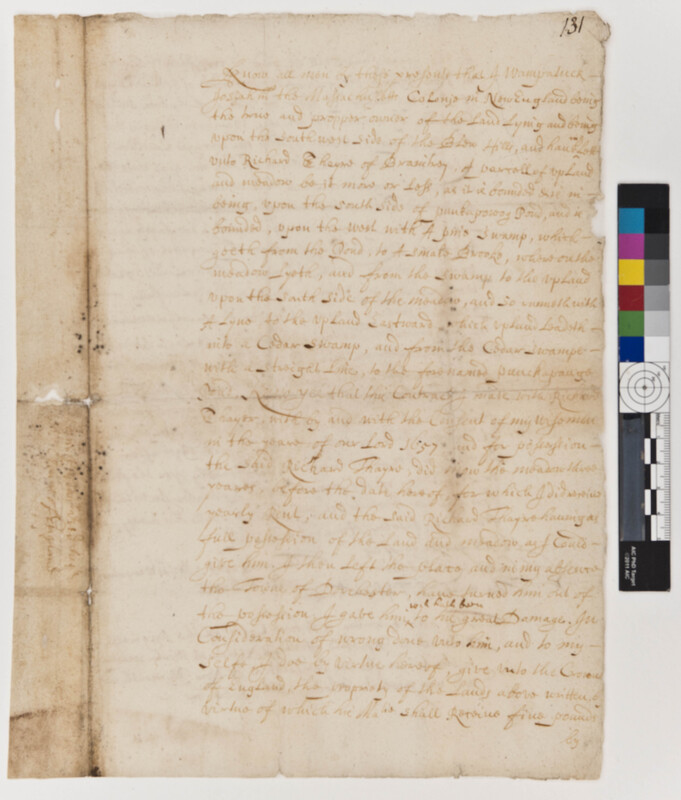 131
Know all men by these presents that I Wampatuck
Josiah in the Massachusetts Colonie in New England being
the true and propper owner of the Land Lying and being
upon the South west side of the Blew Hills, and have
vnto Richard Thayre of Brantrey, A parcell of vpland
and meadow be it more or Less, as it is bounded
being, vpon the South Side of punkapoag Pond, and is
bounded, vpon the west with A pine Swamp, which
goeth from the Pond, to A Smale Brooke, where on the
meadow Lyeth, and from the Swamp to the vpland
vpon the South Side of the meadow, and so runneth with
A Lyne to the vpland Eastward which vpland Leadeth
into a Cedar Swamp, and from the Cedar Swampe
with a Streight Line, to the fore named punckapauge
And Know yee that this Contract I made with Richard
Thayer, with and with the Consent of my wisemen
in the yeare of our Lord 1657 and for possession
the Said Richard Thayre, did mow the meadow three
yeares, before the date hereof, for which I did receive
yearly Rent, and the Said Richard Thayre having as
full possession of the Land and meadow as I Could
give him I then Left the place and in my absence
the Town of Dorcester, have turned him out of
the possession I gave him, to his great Damage, In
wch hath been
Consideration of wrong done vnto him, and to my
Selfe I doe by virtue hereof, give vnto the Crown
of England, the propriety of the Lands above written, by
virtue of which he shall Receive five pounds
by